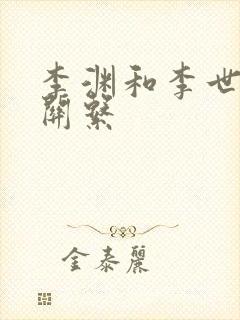 李渊和李世
關繫
金泰麗